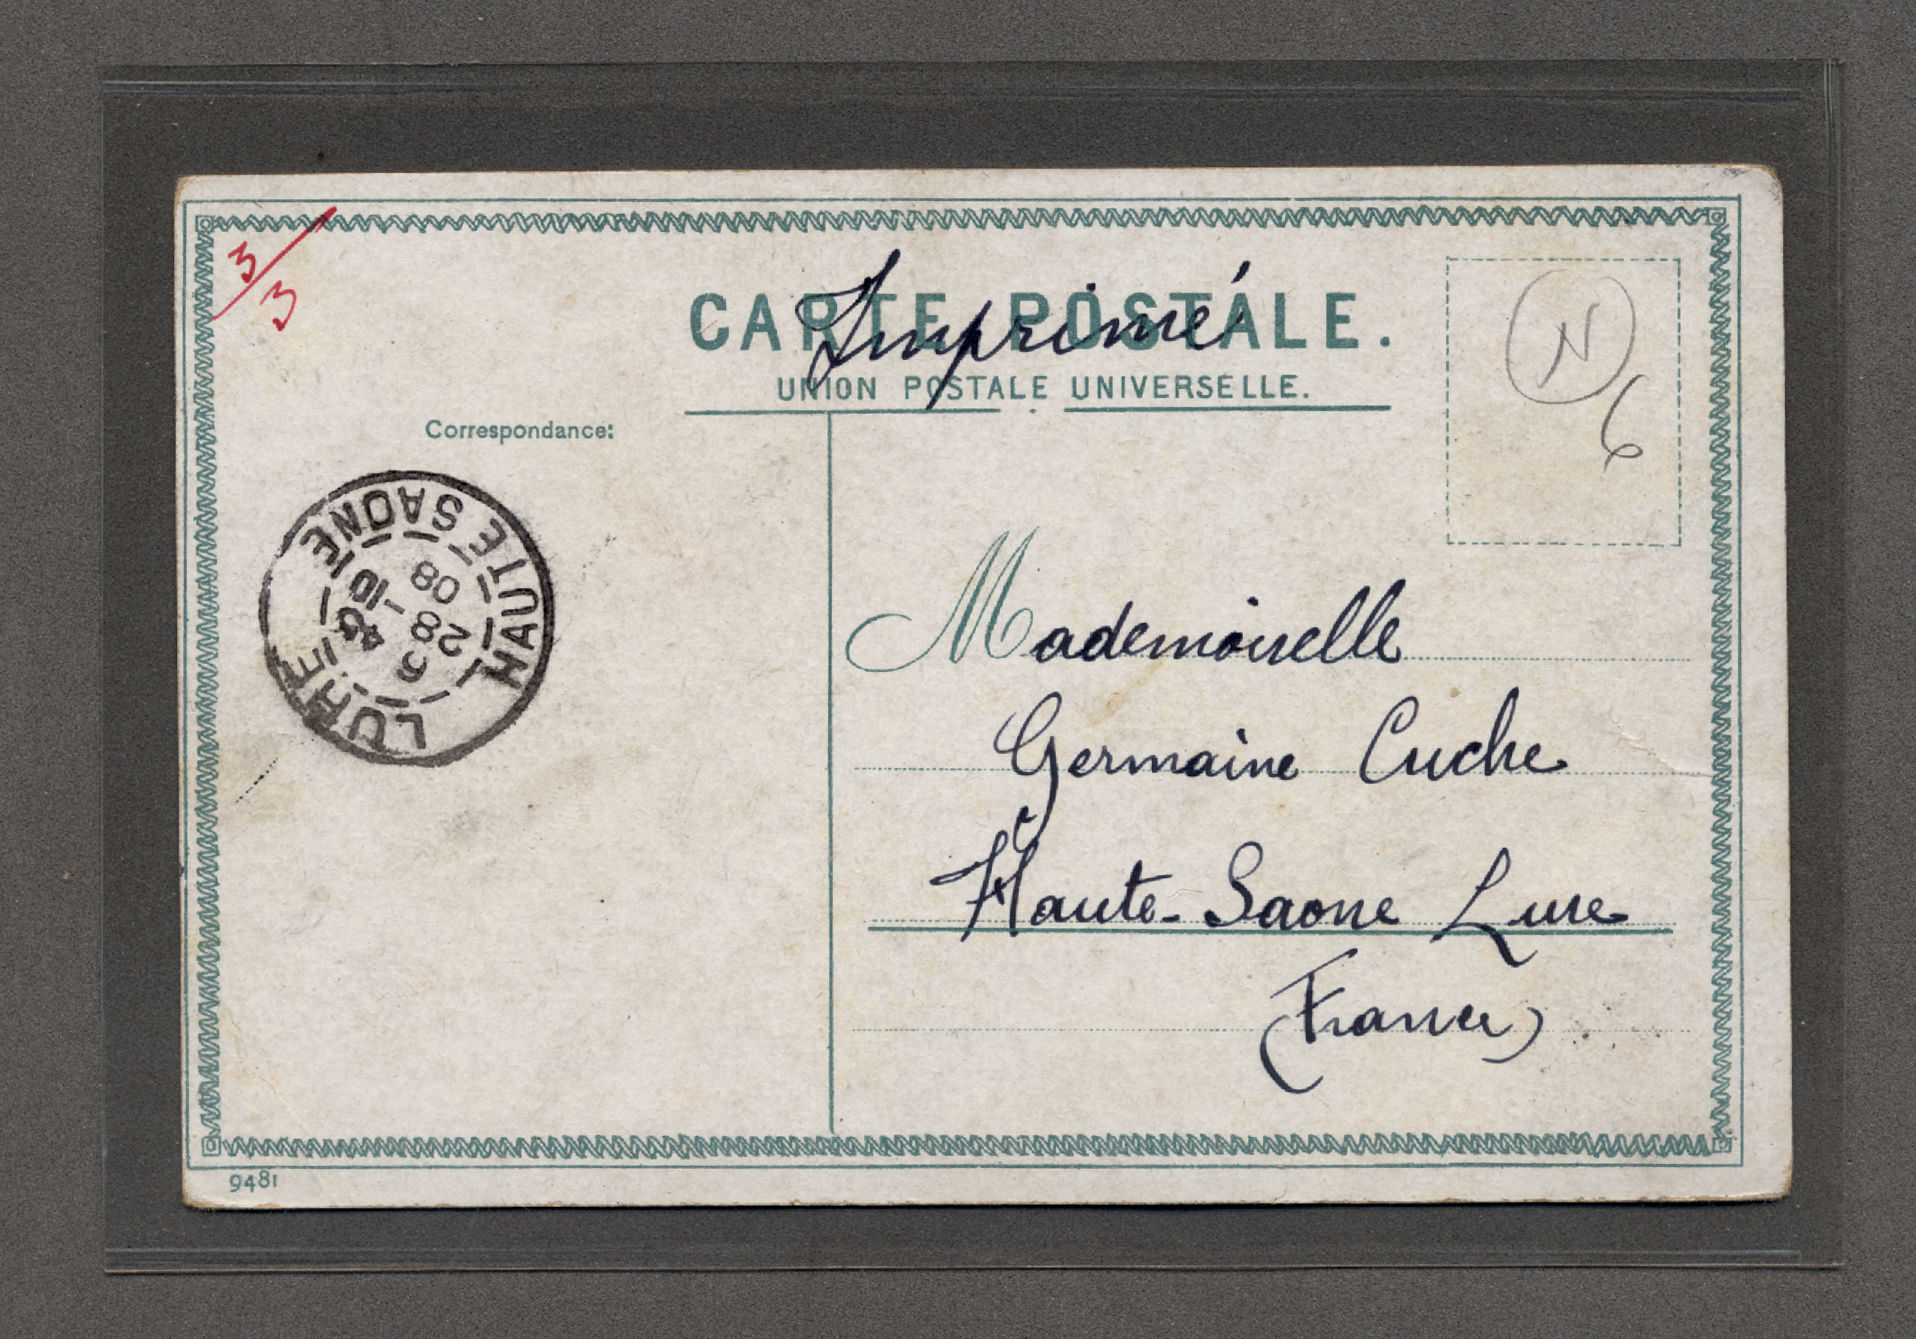 3/3
CARTE POSTALE.
Imprimé
UNION POSTALE UNIVERSELLE.
Correspondance:
N
6
LURE
HAUTE SAONE
28
08
Mademoiselle
Germaine Cuche
Haute-Saone Lure
(France)
9481